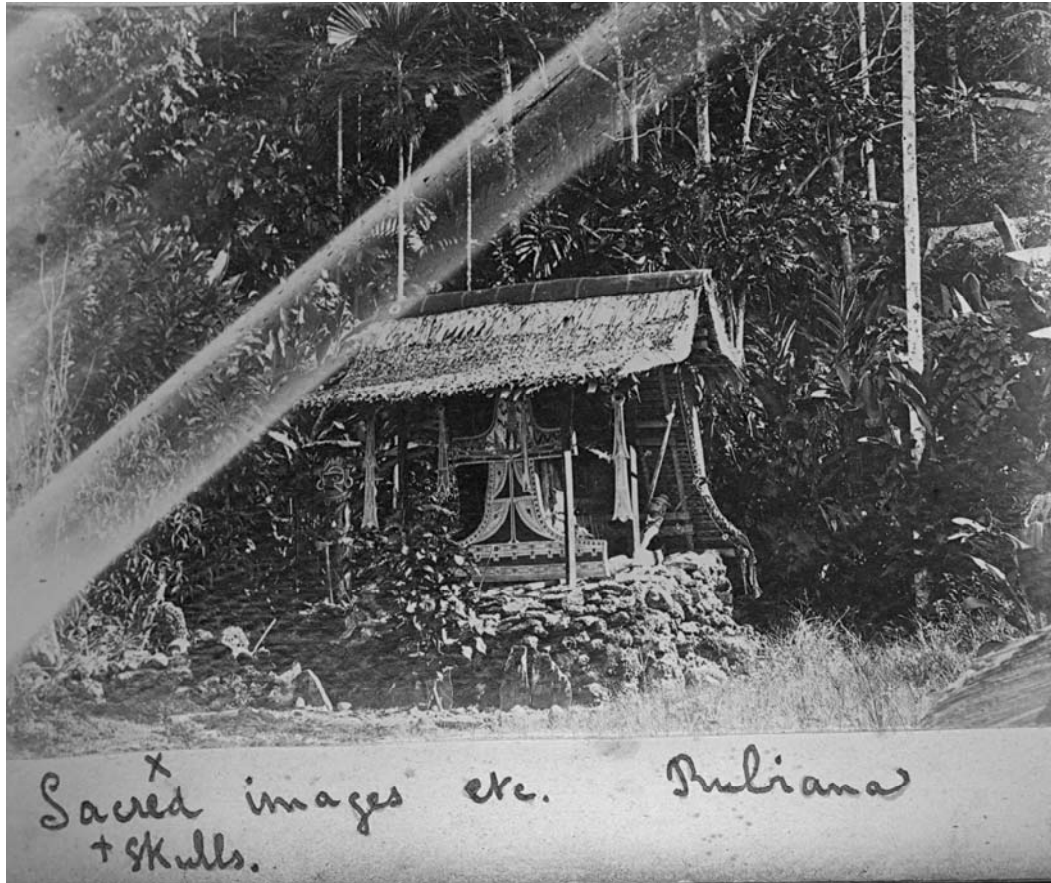 x
Sacred images etc. Rubiana
+ skulls.